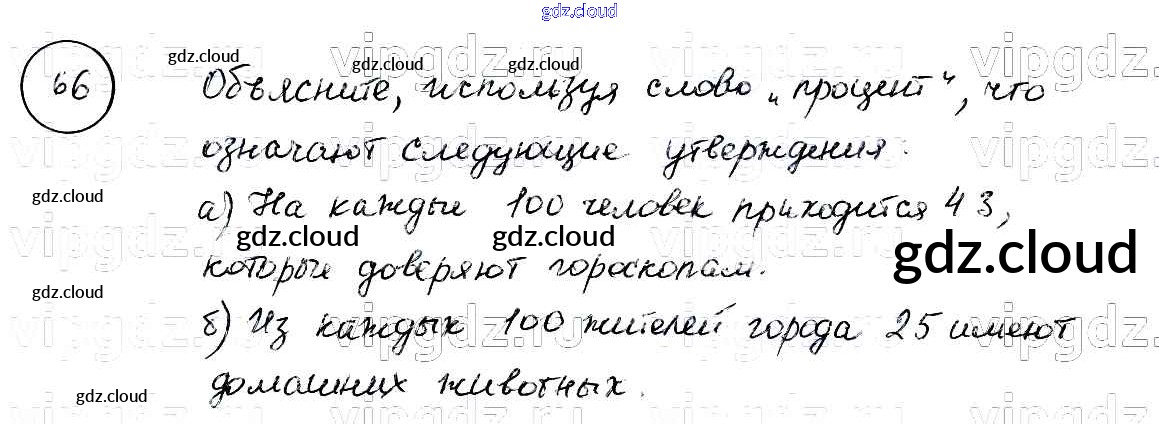 gdz.cloud
vipgdz.ru vipgdz.ru vipgdz.ru vipgdz.ru
gdz.cloud gdz.cloud gdz.cloud
66 Объясните, используя слово „процент“, что
означают следующие утверждения:
gdz.cloud
а) На каждые 100 человек приходится 43,
gdz.cloud gdz.cloud gdz.cloud
которые доверяют гороскопам.
gdz.cloud
б) Из каждых 100 жителей города 25 имеют
домашних животных.
gdz.cloud gdz.cloud